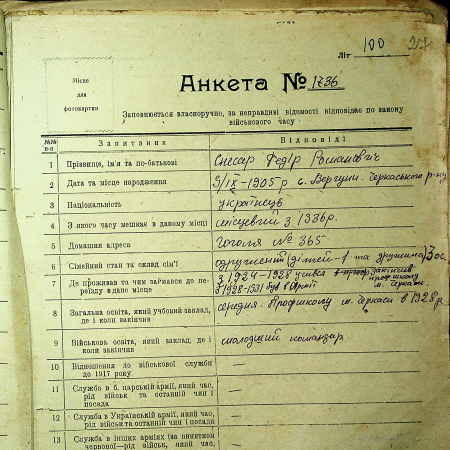 Літ 100
Місце
для
фотокартки
Анкета № 1736
Заповнюється власноручно, за неправдиві відомості відповідає по закону
військового часу
№№ п-п Запитання Відповіді
1 Прізвище, ім'я та по-батькові Снісар Федір Романович
2 Дата та місце народження 9/IX-1905 р с. Вергуни Черкаського р-ну
3 Національність українець
4 З якого часу мешкає в даному місці місцевий з 1936 р.
5 Домашня адреса Гоголя № 365
6 Сімейний стан та склад сім'ї одружений (дітей-1 та дружина) 3 ос.
7 Де проживав та чим займався до пе-
реїзду в дане місце
З 1924-1928 учився закінчив
профшколу
З 1928-1931 був в армії м. Черкаси
8 Загальна освіта, який учбовий заклад,
де і коли закінчив
середня. Профшколу м. Черкаси в 1928 р.
9 Військова освіта, який заклад, де і
коли закінчив
молодший командир.
10 Відношення до військової служби
до 1917 року
—
11 Служба в б. царській армії, який час,
рід військ та останній чин і
посада
—
12 Служба в Українській армії, який час,
рід військ та останній чин і посада
—
13 Служба в інших арміях (за винятком
червоної—рід військ, який час,